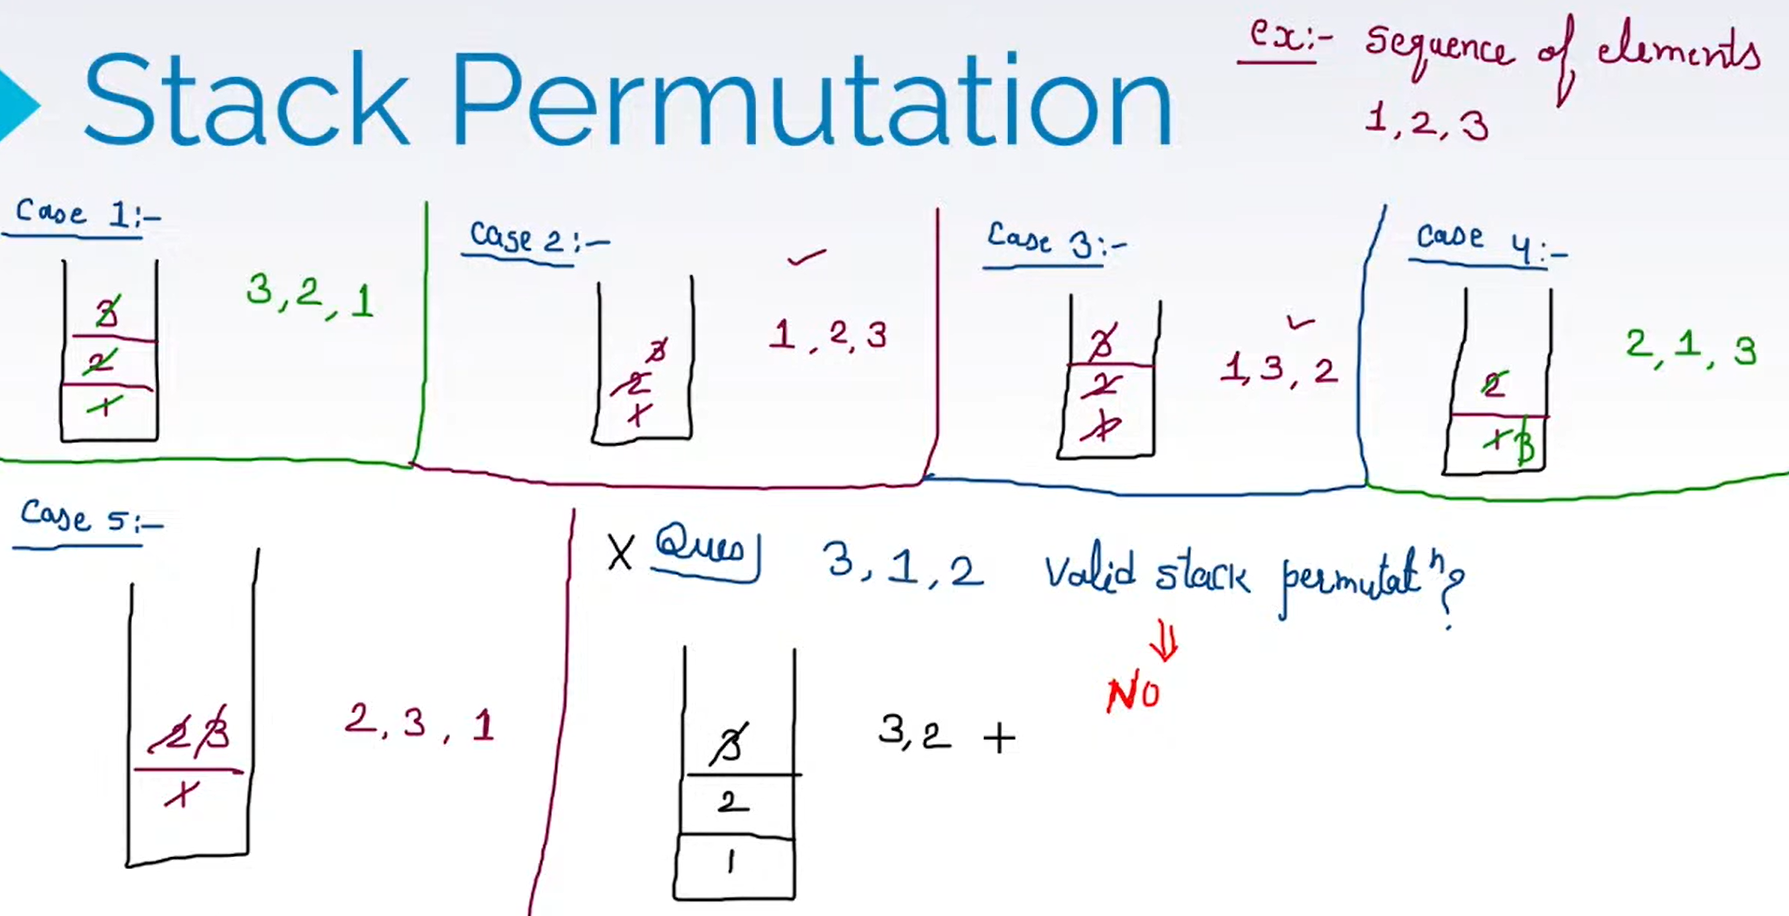 Stack Permutation
ex:- sequence of elements
1, 2, 3
Case 1:-
3
2
1
3, 2, 1
Case 2:-
3
2
1
1, 2, 3
Case 3:-
3
2
1
1, 3, 2
Case 4:-
2
1 3
2, 1, 3
Case 5:-
2 3
1
2, 3, 1
X Ques 3, 1, 2 Valid stack permutatⁿ?
NO
3
2
1
3, 2 +